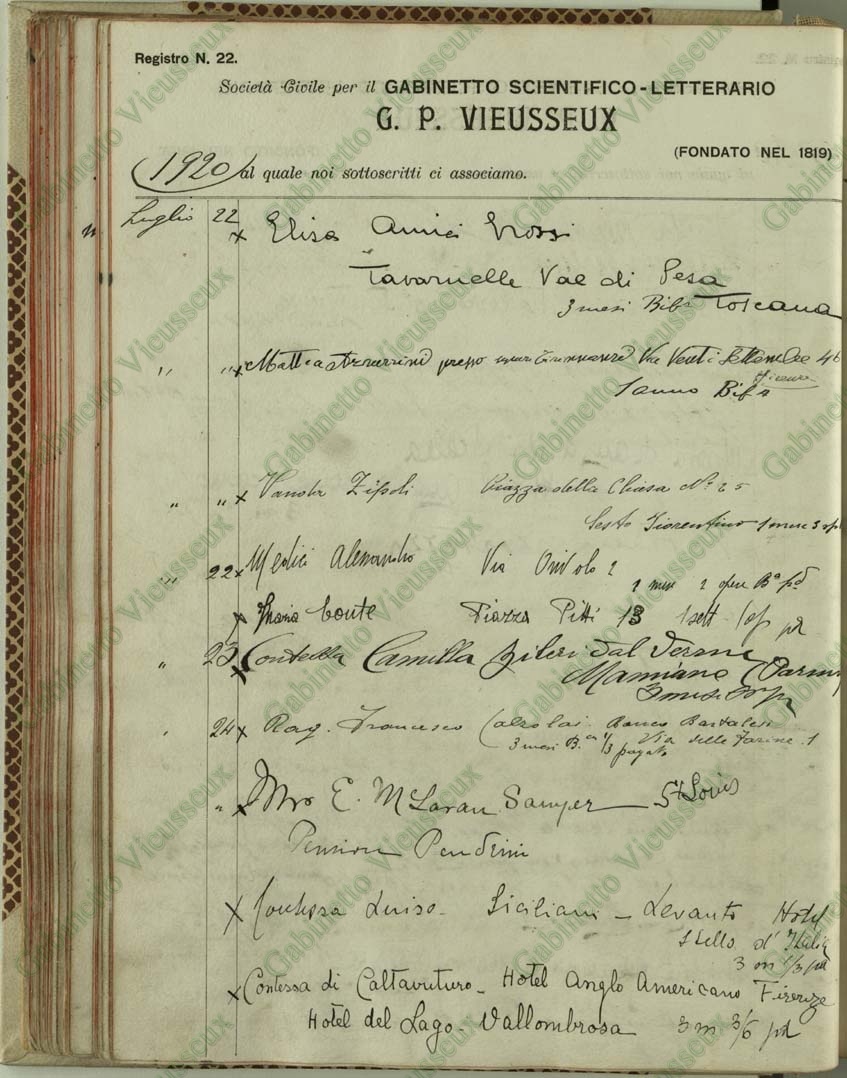 Registro N. 22.
Società Civile per il GABINETTO SCIENTIFICO-LETTERARIO
G. P. VIEUSSEUX
(FONDATO NEL 1819)
1920 al quale noi sottoscritti ci associamo.
Luglio 22 x Elisa Amici Grossi
Tavarnelle Val di Pesa
3 mesi Bibª Toscana
" " x Mattia presso Via Venti Settembre 46
Firenze
1 anno Bibª
" " x Vanda Zipoli Piazza della Chiesa Nº 25
Sesto Fiorentino 1 mese 3 op
" 22 x Medici Alessandro Via Oriuolo 2
1 mese 2 opere Bª pd
x Maria Conte Piazza Pitti 13 1 sett 1 op pd
" 23 x Contessa Camilla dal Verme
Mamiano (Parma)
3 mesi
" 24 x Rag. Francesco Calzolai Banco
3 mesi B. 1/3 pagato Via delle Farine 1
" x Mrs E. McLaran Samper St Louis
Pension Pendini
x Contessa Luisa Siciliani - Levanto Hotel
Stella d'Italia
3 m 1/3 pd
x Contessa di Caltavuturo - Hotel Anglo Americano Firenze
Hotel del Lago - Vallombrosa 3 m 3/6 pd
Gabinetto Vieusseux